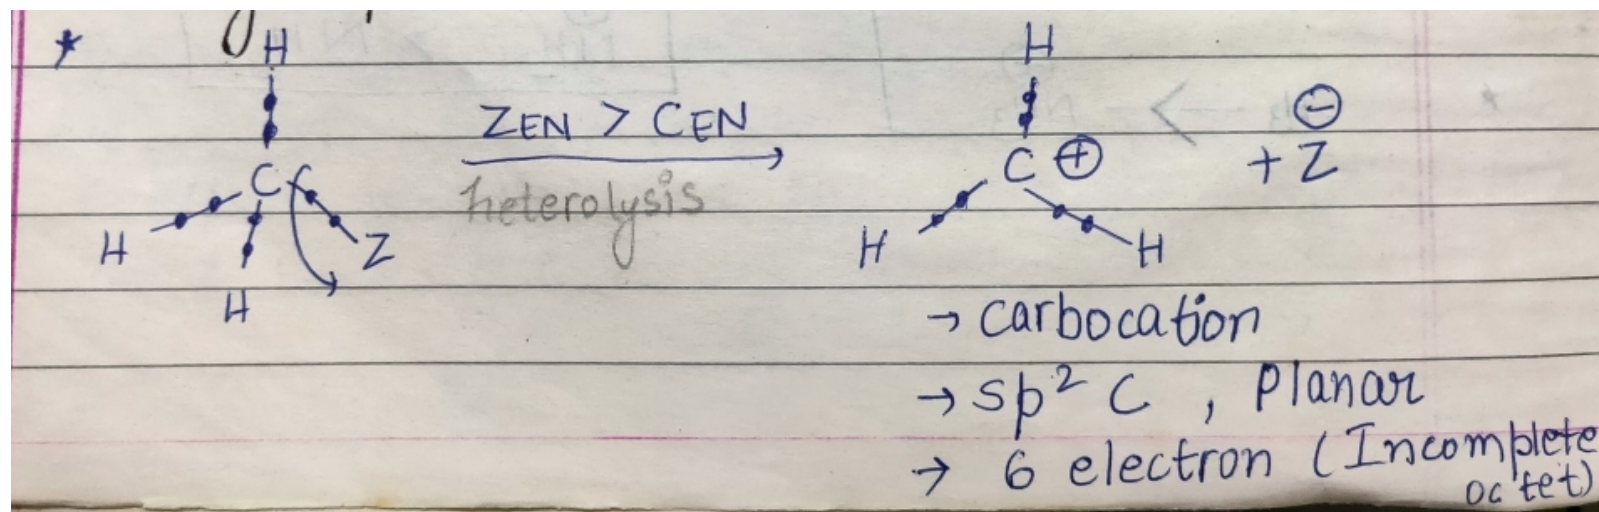 * H H
ZEN > CEN ⊖
C C ⊕ + Z
heterolysis
H Z H H
H
→ Carbocation
→ sp² C , Planar
→ 6 electron (Incomplete
octet)